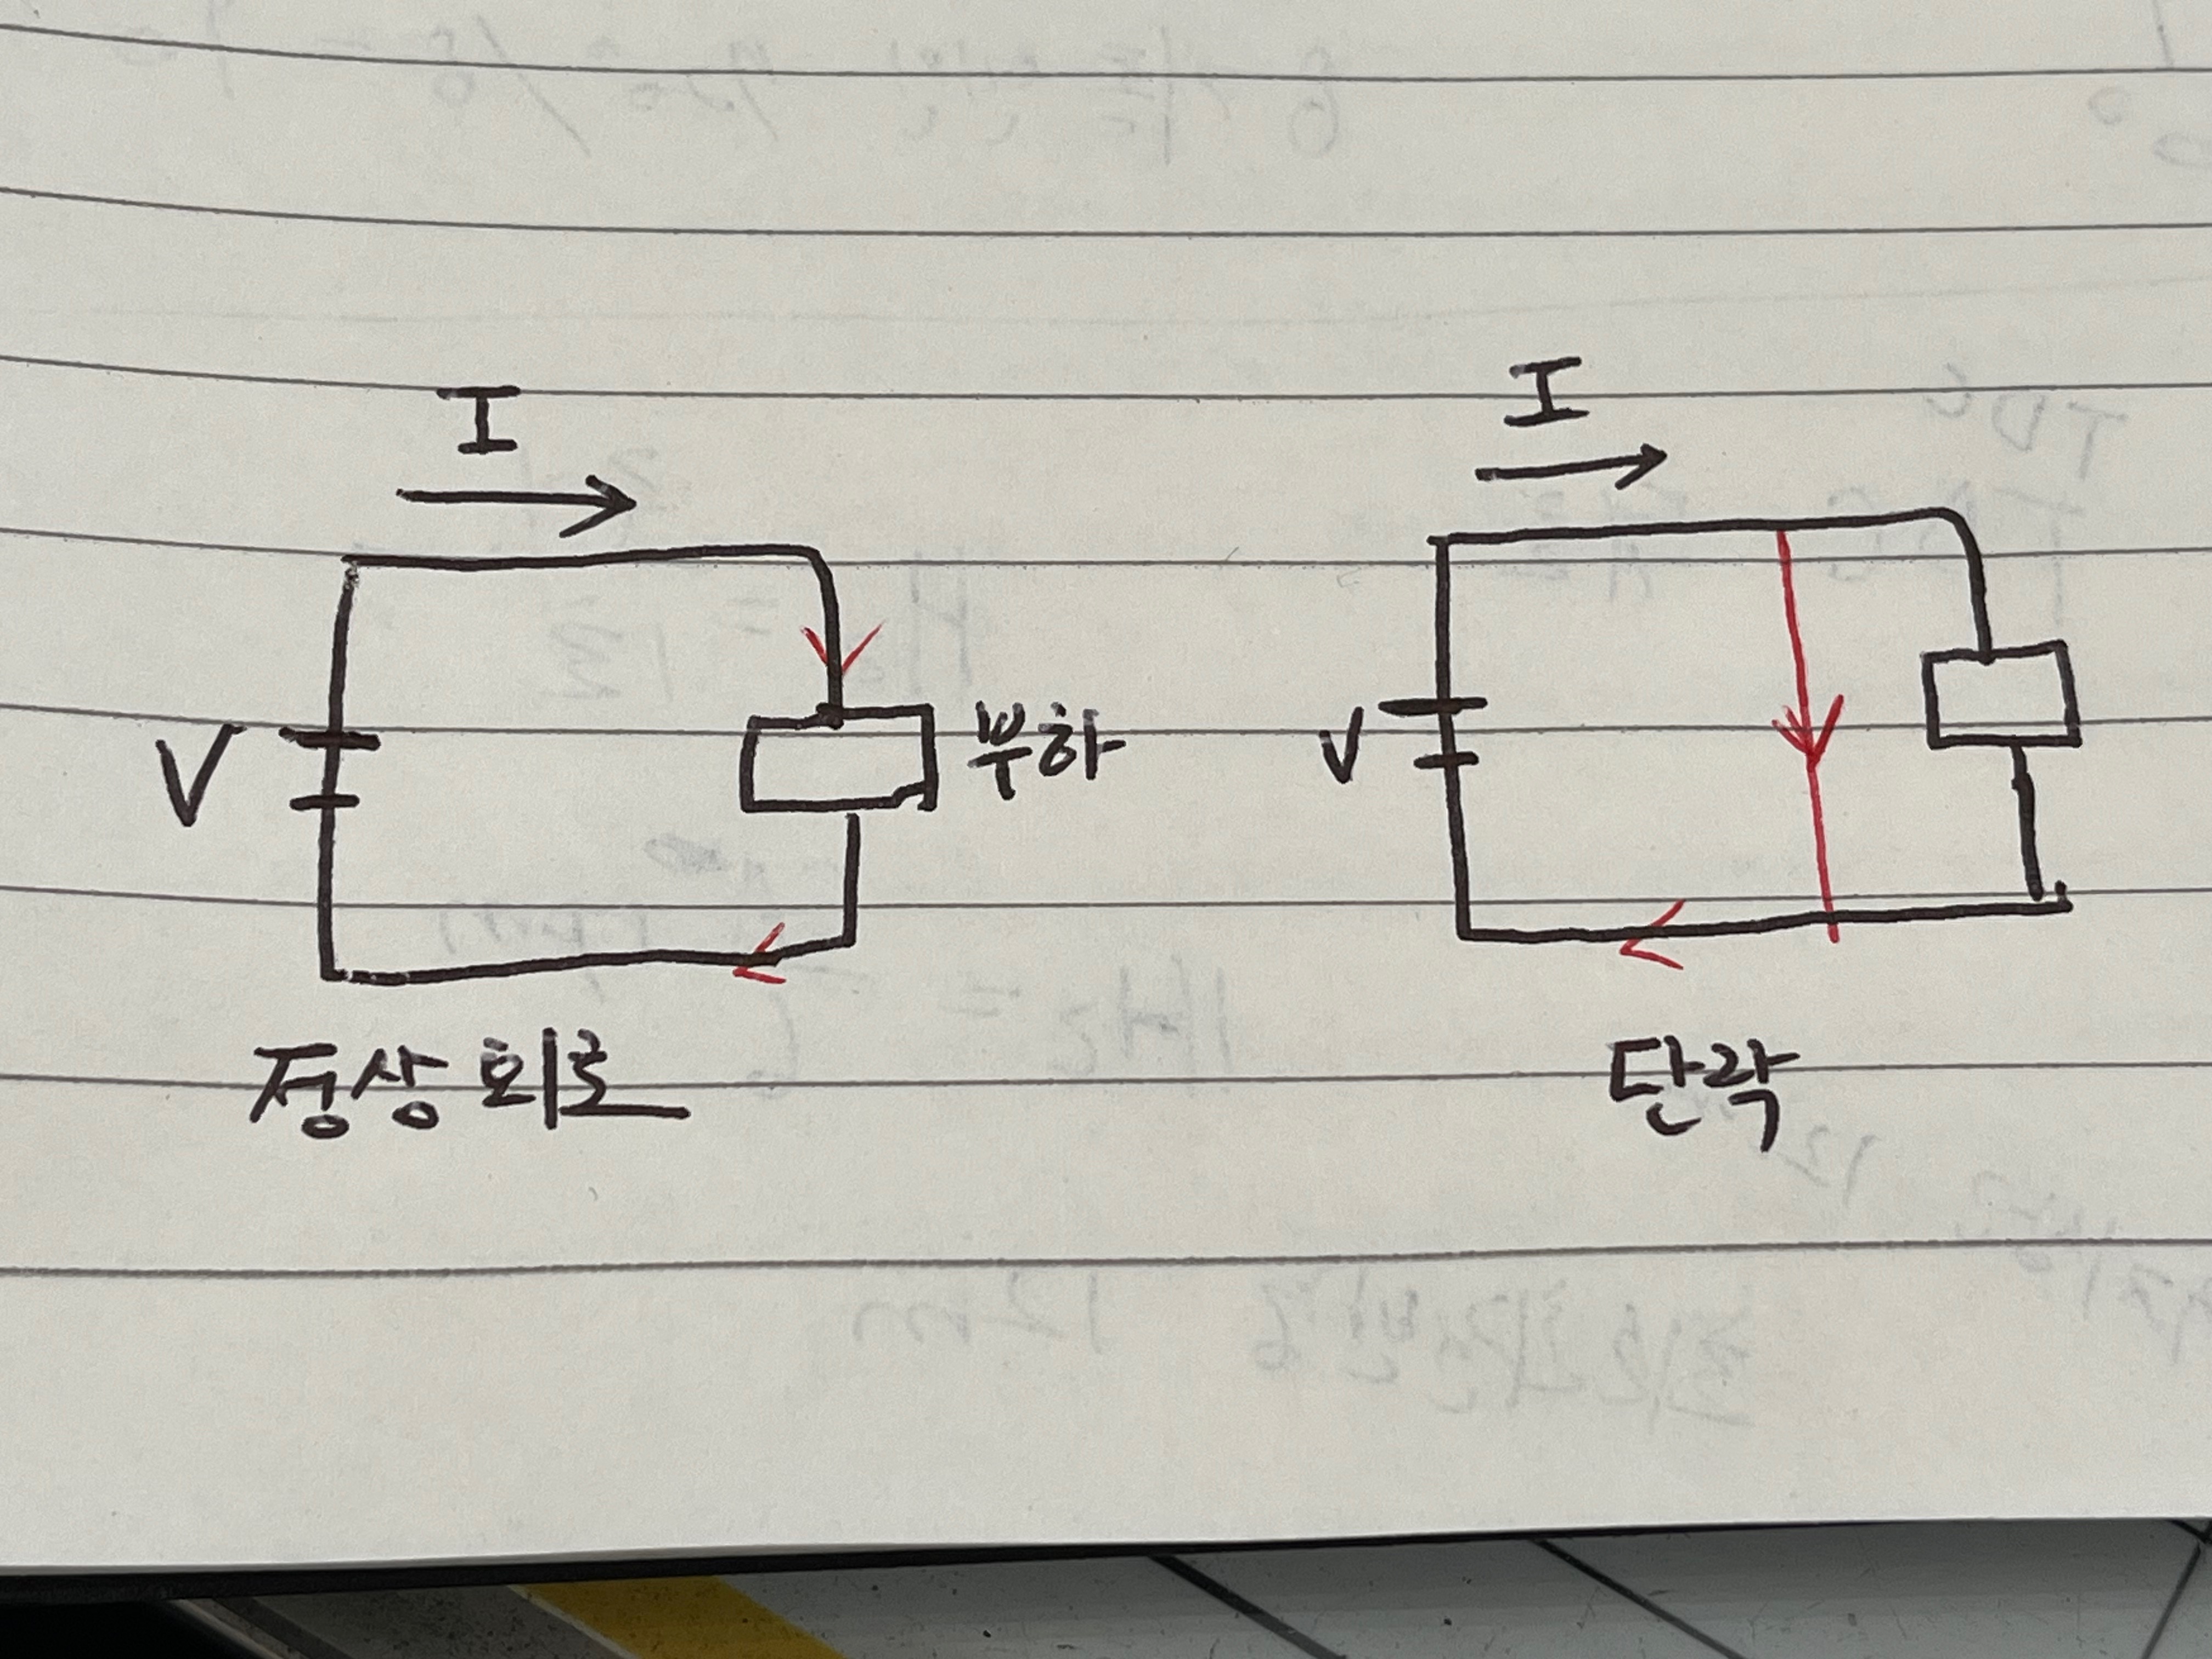 I
I
V
부하
V
정상 회로
단락